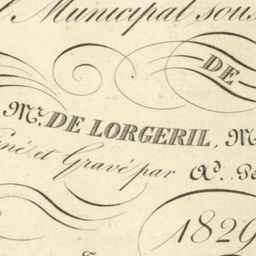 Municipal sous
DE
Mr. DE LORGERIL, M
et Gravé par
1829